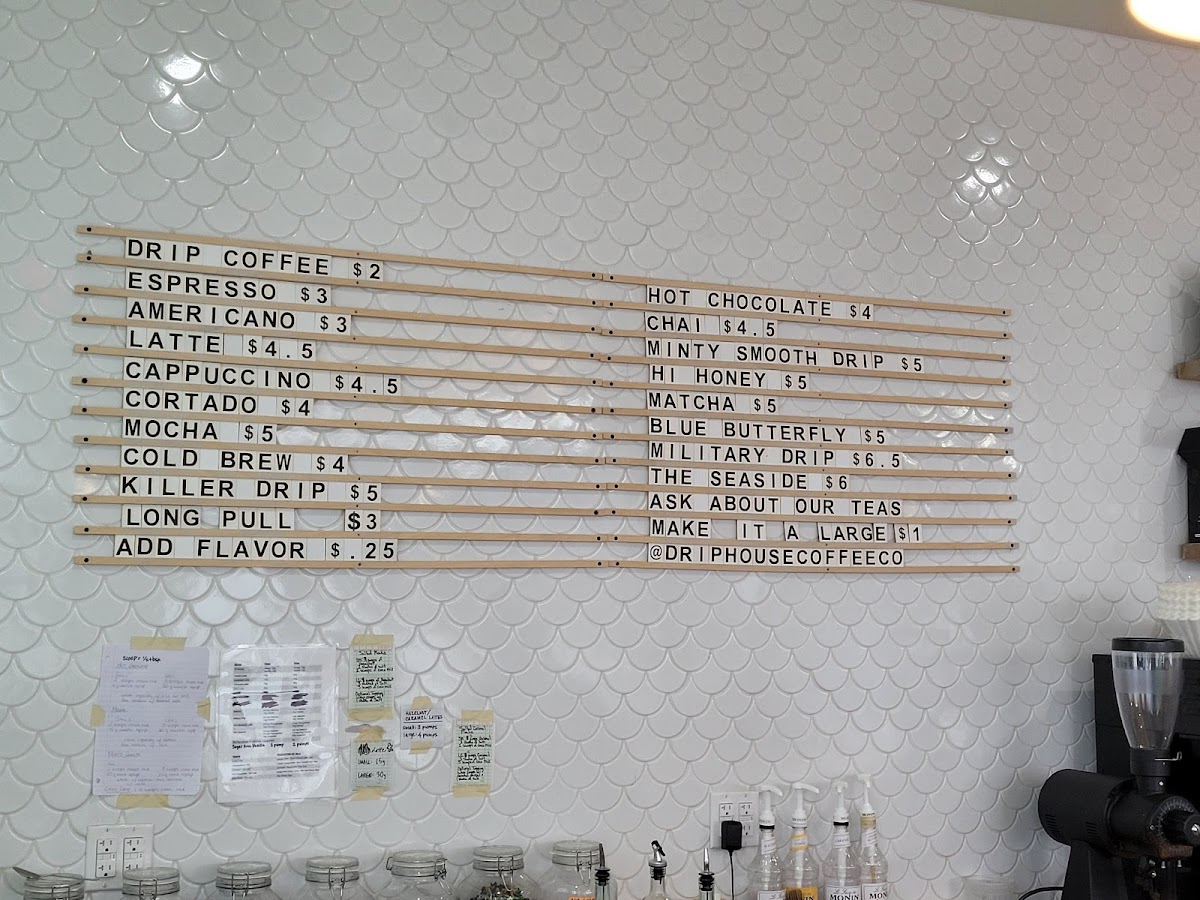 DRIP COFFEE $2
ESPRESSO $3
AMERICANO $3
LATTE $4.5
CAPPUCCINO $4.5
CORTADO $4
MOCHA $5
COLD BREW $4
KILLER DRIP $5
LONG PULL $3
ADD FLAVOR $.25
HOT CHOCOLATE $4
CHAI $4.5
MINTY SMOOTH DRIP $5
HI HONEY $5
MATCHA $5
BLUE BUTTERFLY $5
MILITARY DRIP $6.5
THE SEASIDE $6
ASK ABOUT OUR TEAS
MAKE IT A LARGE $1
@DRIPHOUSECOFFEECO
MONIN
MON